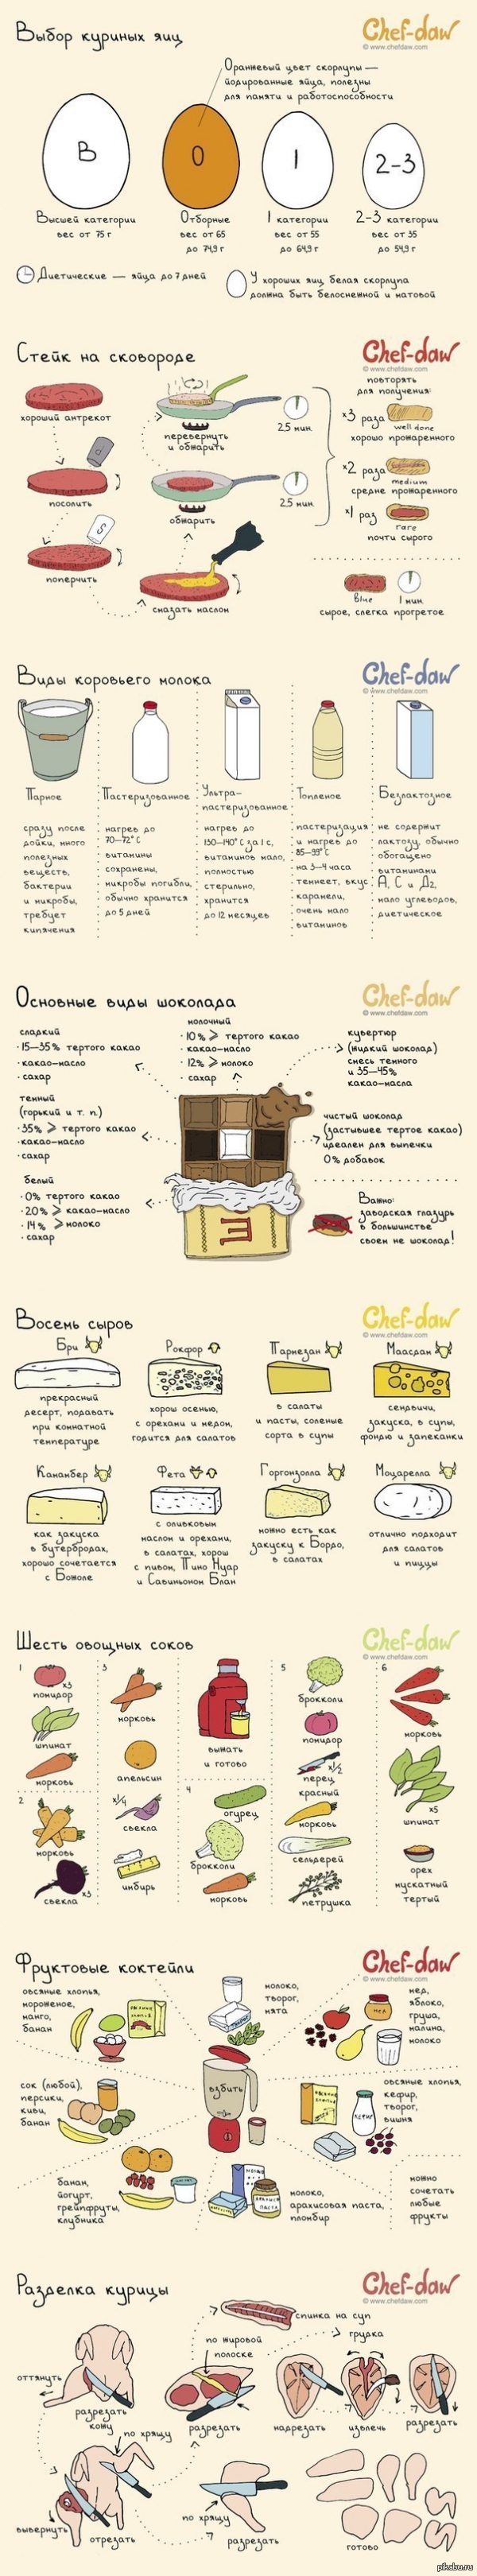 Выбор куриных яиц
Chef-daw
© www.chefdaw.com
Оранжевый цвет скорлупы —
йодированные яйца, полезны
для памяти и работоспособности
В
О
1
2-3
Высшей категории
вес от 75 г
Отборные
вес от 65
до 74,9 г
1 категории
вес от 55
до 64,9 г
2-3 категории
вес от 35
до 54,9 г
Диетические — яйца до 7 дней
У хороших яиц белая скорлупа
должна быть белоснежной и матовой
Стейк на сковороде
Chef-daw
© www.chefdaw.com
хороший антрекот
посолить
S
поперчить
смазать маслом
обжарить
2,5 мин.
перевернуть
и обжарить
2,5 мин.
повторять
для получения:
×3 раза
well done
хорошо прожаренного
×2 раза
medium
средне прожаренного
×1 раз
rare
почти сырого
Blue
1 мин.
сырое, слегка прогретое
Виды коровьего молока
Chef-daw
© www.chefdaw.com
Парное
сразу после
дойки, много
полезных
веществ,
бактерии
и микробы,
требует
кипячения
Пастеризованное
нагрев до
70—72° С
витамины
сохранены,
микробы погибли,
обычно хранится
до 5 дней
Ультра-
пастеризованное
нагрев до
130—140° С за 1 с,
витаминов мало,
полностью
стерильно,
хранится
до 12 месяцев
Топленое
пастеризация
и нагрев до
85—99° С
на 3—4 часа
темнеет, вкус
карамели,
очень мало
витаминов
Безлактозное
не содержит
лактозу, обычно
обогащено
витаминами
А, С и Д2,
мало углеводов,
диетическое
Основные виды шоколада
Chef-daw
© www.chefdaw.com
сладкий
· 15—35% тертого какао
· какао-масло
· сахар
молочный
· 10% ⩾ тертого какао
· какао-масло
· 12% ⩾ молоко
· сахар
кувертюр
(жидкий шоколад)
смесь темного
и 35—45%
какао-масла
темный
(горький и т. п.)
· 35% ⩾ тертого какао
· какао-масло
· сахар
чистый шоколад
(застывшее тертое какао)
идеален для выпечки
0% добавок
белый
· 0% тертого какао
· 20% ⩾ какао-масло
· 14% ⩾ молоко
· сахар
Важно:
заводская глазурь
в большинстве
своем не шоколад!
Восемь сыров
Chef-daw
© www.chefdaw.com
Бри
прекрасный
десерт, подавать
при комнатной
температуре
Рокфор
хорош осенью,
с орехами и медом,
годится для салатов
Пармезан
в салаты
и пасты, соленые
сорта в супы
Маасдам
сендвичи,
закуска, в супы,
фондю и запеканки
Камамбер
как закуска
в бутербродах,
хорошо сочетается
с Божоле
Фета
с оливковым
маслом и орехами,
в салатах, хорош
с пивом, Пино Нуар
и Савиньоном Блан
Горгонзолла
можно есть как
закуску к Бордо,
в салатах
Моцарелла
отлично подходит
для салатов
и пиццы
Шесть овощных соков
Chef-daw
© www.chefdaw.com
1
×3
помидор
шпинат
морковь
2
морковь
×3
свекла
3
морковь
апельсин
×1/4
свекла
имбирь
выжать
и готово
4
огурец
брокколи
морковь
5
брокколи
помидор
×1/2
перец
красный
морковь
сельдерей
петрушка
6
морковь
×5
шпинат
орех
мускатный
тертый
Фруктовые коктейли
Chef-daw
© www.chefdaw.com
овсяные хлопья,
мороженое,
манго,
банан
молоко,
творог,
мята
мед,
яблоко,
груша,
малина,
молоко
МЕД
сок (любой),
персики,
киви,
банан
взбить
овсяные хлопья,
кефир,
творог,
вишня
КЕФИР
банан,
йогурт,
грейпфруты,
клубника
молоко,
арахисовая паста,
пломбир
можно
сочетать
любые
фрукты
Разделка курицы
Chef-daw
© www.chefdaw.com
спинка на суп
грудка
по жировой
полоске
оттянуть
разрезать
кожу
разрезать
надрезать
извлечь
разрезать
по хрящу
вывернуть
отрезать
по хрящу
разрезать
готово
pikabu.ru